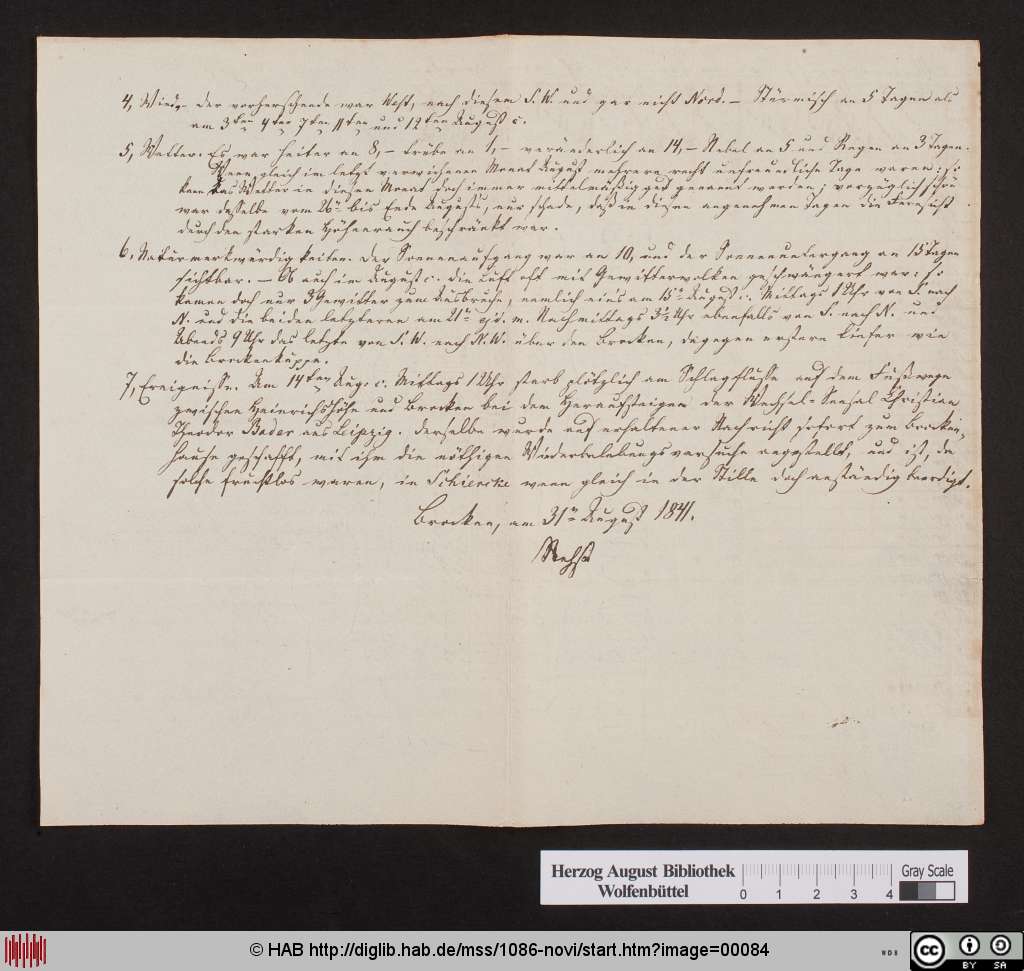 4, Wind. der vorherrschende war West, nach diesem S. W. und gar nicht Nord. – Stürmisch an 5 Tagen als
am 3ten 4ten 7ten 11ten und 12ten August c.
5, Wetter. Es war heiter an 8, – trübe an 1, – veränderlich an 14, – Nebel an 5 und Regen an 3 Tagen.
Wenn gleich im letzt verwichenen Monat August mehrere recht unfreundliche Tage waren; so
kann das Wetter in diesem Monat doch immer mittelmäßig gut genannt werden; vorzüglich schön
war dasselbe vom 26n bis Ende Augusts, nur schade, daß in diesen angenehmen Tagen die Fernsicht
durch den starken Höhenrauch beschränkt war.
6, Naturmerkwürdigkeiten. Der Sonnenaufgang war an 10, und der Sonnenuntergang an 15 Tagen
sichtbar. – Ob auch im August c. die Luft oft mit Gewitterwolken geschwängert war: so
kamen doch nur 3 Gewitter zum Ausbruche, nemlich eins am 15n August c. Mittags 1 Uhr von S. nach
N. und die beiden letzteren am 21n ejd. m. Nachmittags 3½ Uhr ebenfalls von S. nach N. und
Abends 9 Uhr das letzte von S. W. nach N. W. über den Brocken, dagegen erstere tiefer wie
die Brockenkuppe.
7, Ereignisse. Am 14ten Aug. c. Mittags 1 Uhr starb plötzlich am Schlagflusse auf dem Fußwege
zwischen Heinrichshöhe und Brocken bei dem Heraufsteigen der Wechsel-Sensal Christian
Theodor Bader aus Leipzig. Derselbe wurde auf erhaltener Nachricht sofort zum Brocken-
hause geschafft, mit ihm die nöthigen Wiederbelebungsversuche angestellt, und ist, da
solche fruchtlos waren, in Schiercke wenn gleich in der Stille doch anständig beerdigt.
Brocken, am 31n August 1841.
Nehse
Herzog August Bibliothek
Wolfenbüttel
0 1 2 3 4
Gray Scale
© HAB http://diglib.hab.de/mss/1086-novi/start.htm?image=00084
WDB
cc BY SA